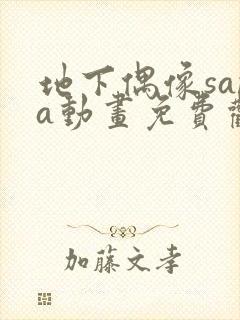 地下偶像sa
a動畫免費
加藤文孝